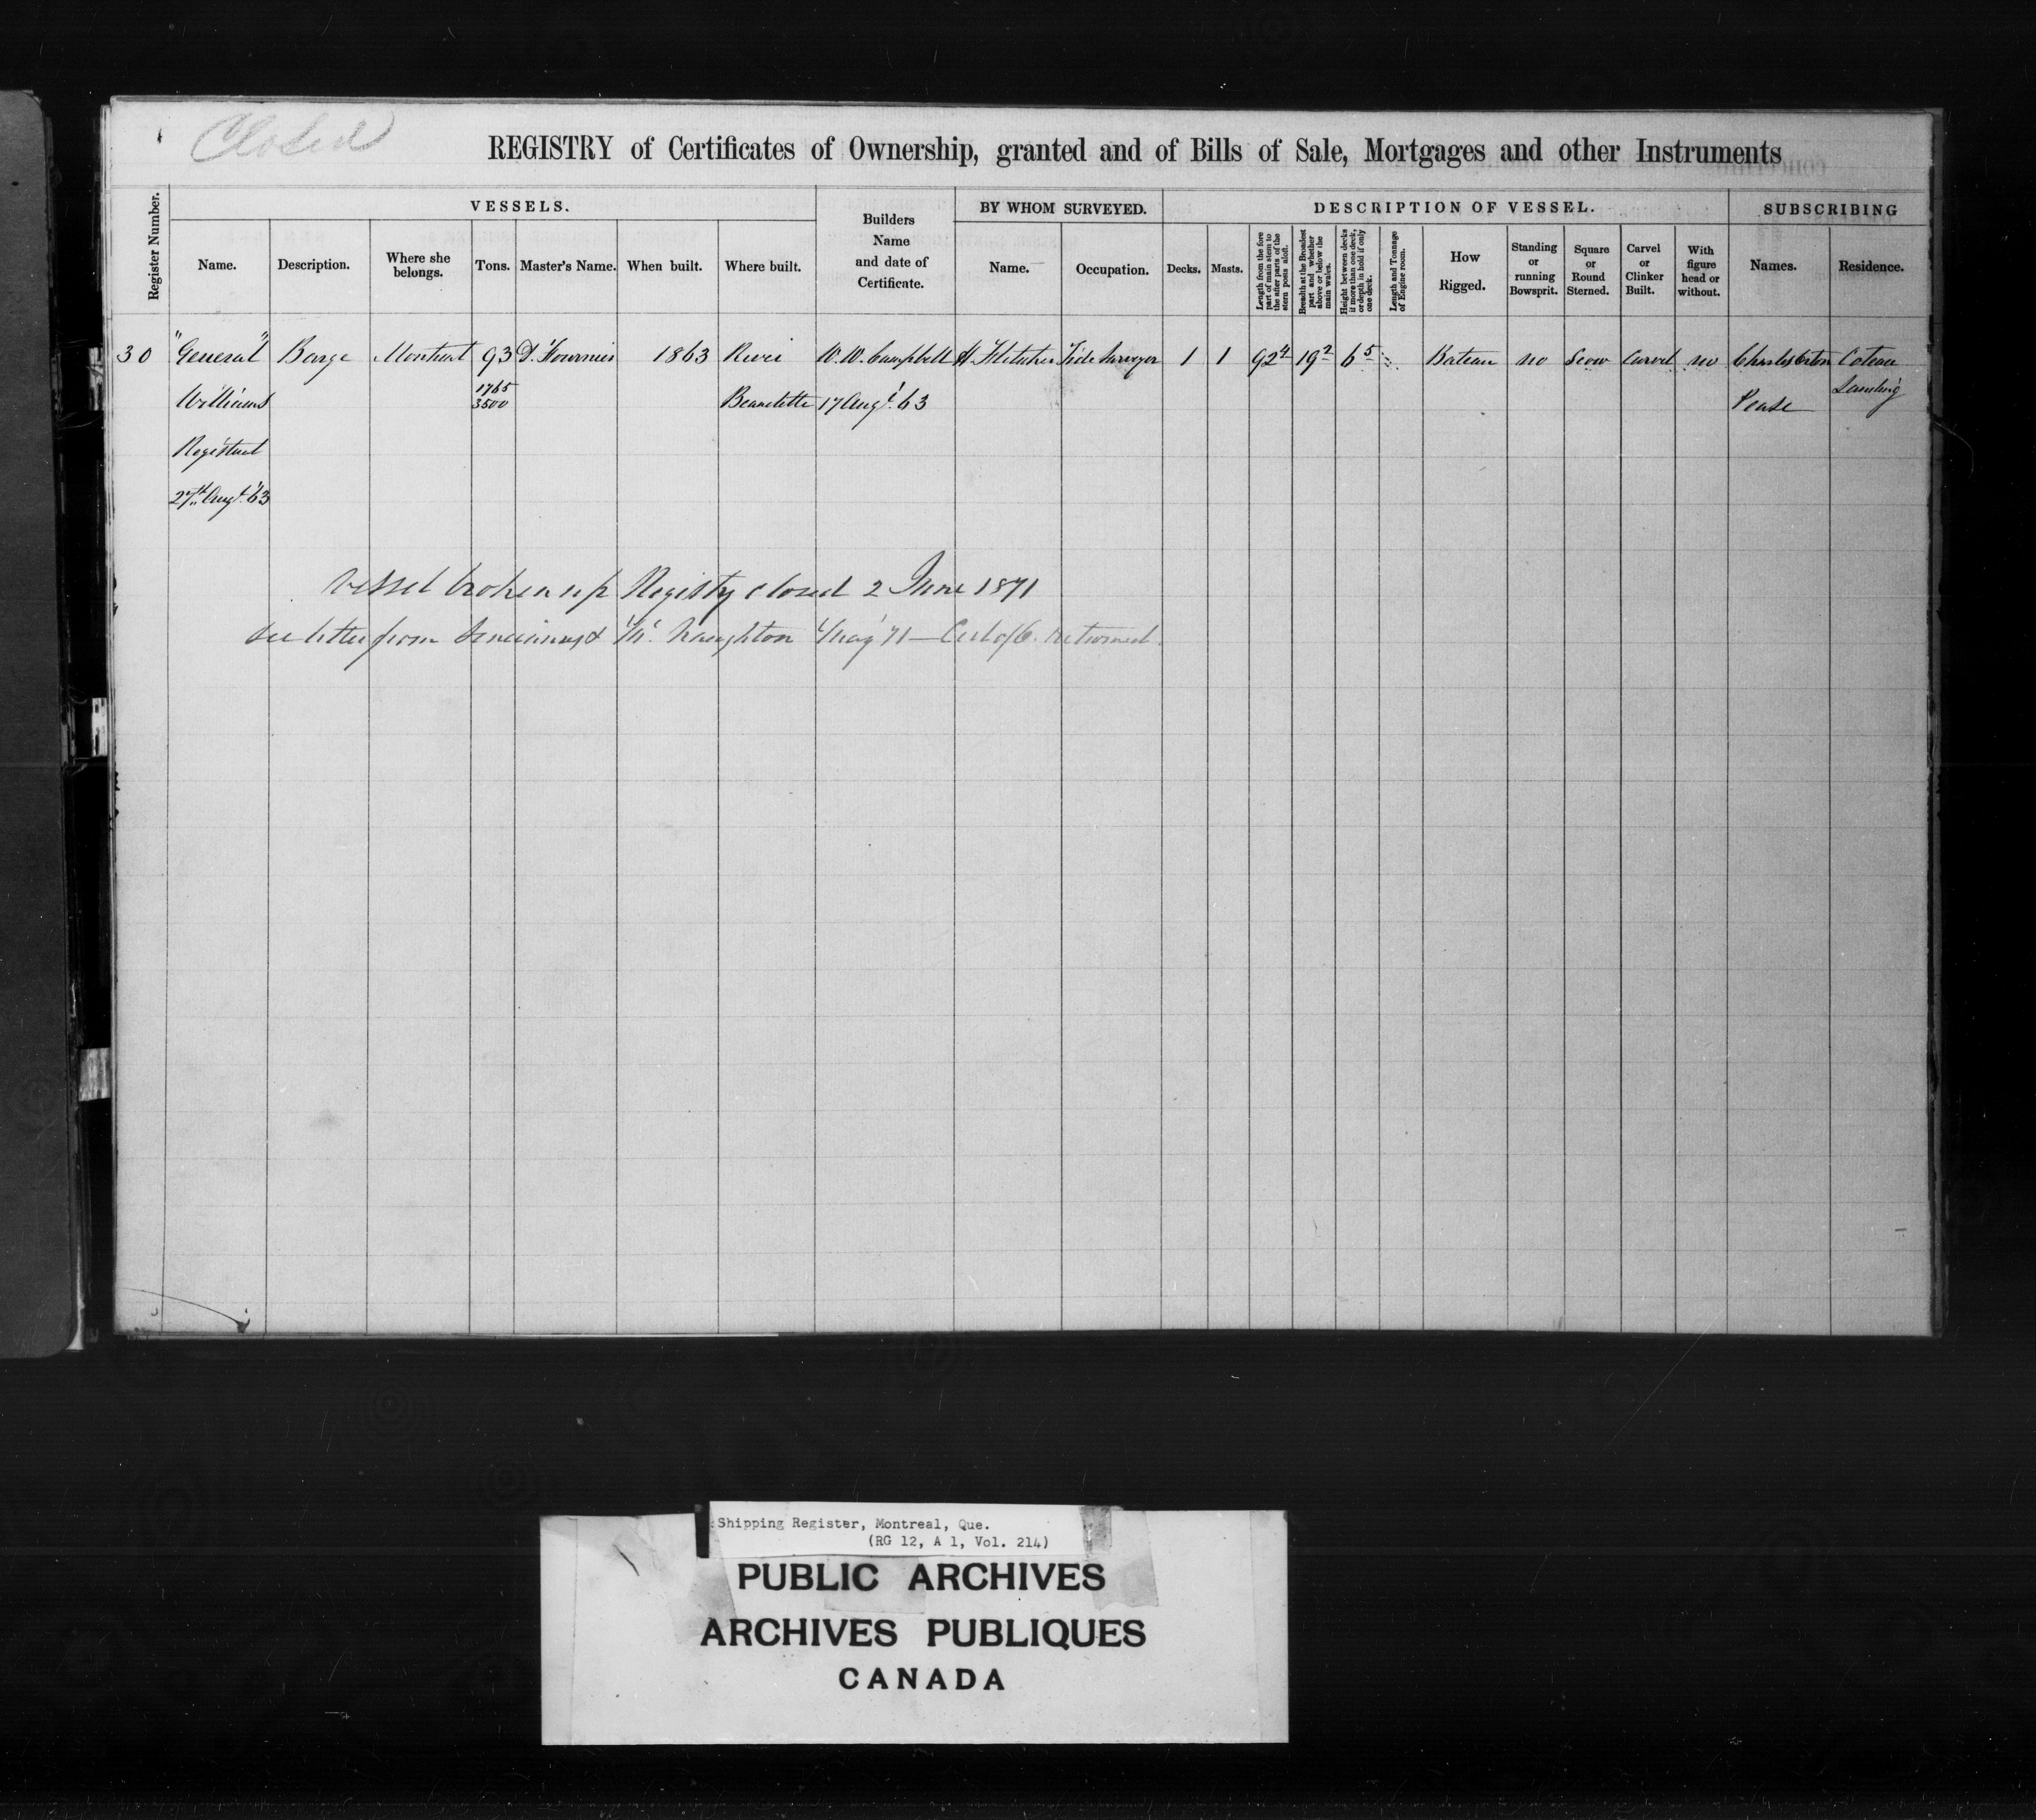 Closed
REGISTRY of Certificates of Ownership, granted and of Bills of Sale, Mortgages and other Instruments
Register Number.
VESSELS.
Name.
Description.
Where she belongs.
Tons.
Master's Name.
When built.
Where built.
Builders Name and date of Certificate.
BY WHOM SURVEYED.
Name.
Occupation.
DESCRIPTION OF VESSEL.
Decks.
Masts.
Length from the fore part of main stem to the after parts of the stern posts aloft.
Breadth at the Broadest part and whether above or below the main wales.
Height between decks if more than one deck, or depth in hold if only one deck.
Length and Tonnage of Engine room.
How Rigged.
Standing or running Bowsprit.
Square or Round Sterned.
Carvel or Clinker Built.
With figure head or without.
SUBSCRIBING
Names.
Residence.
30 "General" Barge Montreal 93 D. Fournier 1863 River W. W. Campbell H. Fletcher Tide Surveyor 1 1 92 4 19 2 6 5 Bateau no Scow Carvel no Charles Coteau
Williams 1765 3500 Beaudette 17 Augt. 63 Pease Landing
Registered
27th Augt. 63
Vessel broken up Registry closed 2 June 1871
See letter from & McNaughton May 71 — Cert of returned.
Shipping Register, Montreal, Que.
(RG 12, A 1, Vol. 214)
PUBLIC ARCHIVES
ARCHIVES PUBLIQUES
CANADA